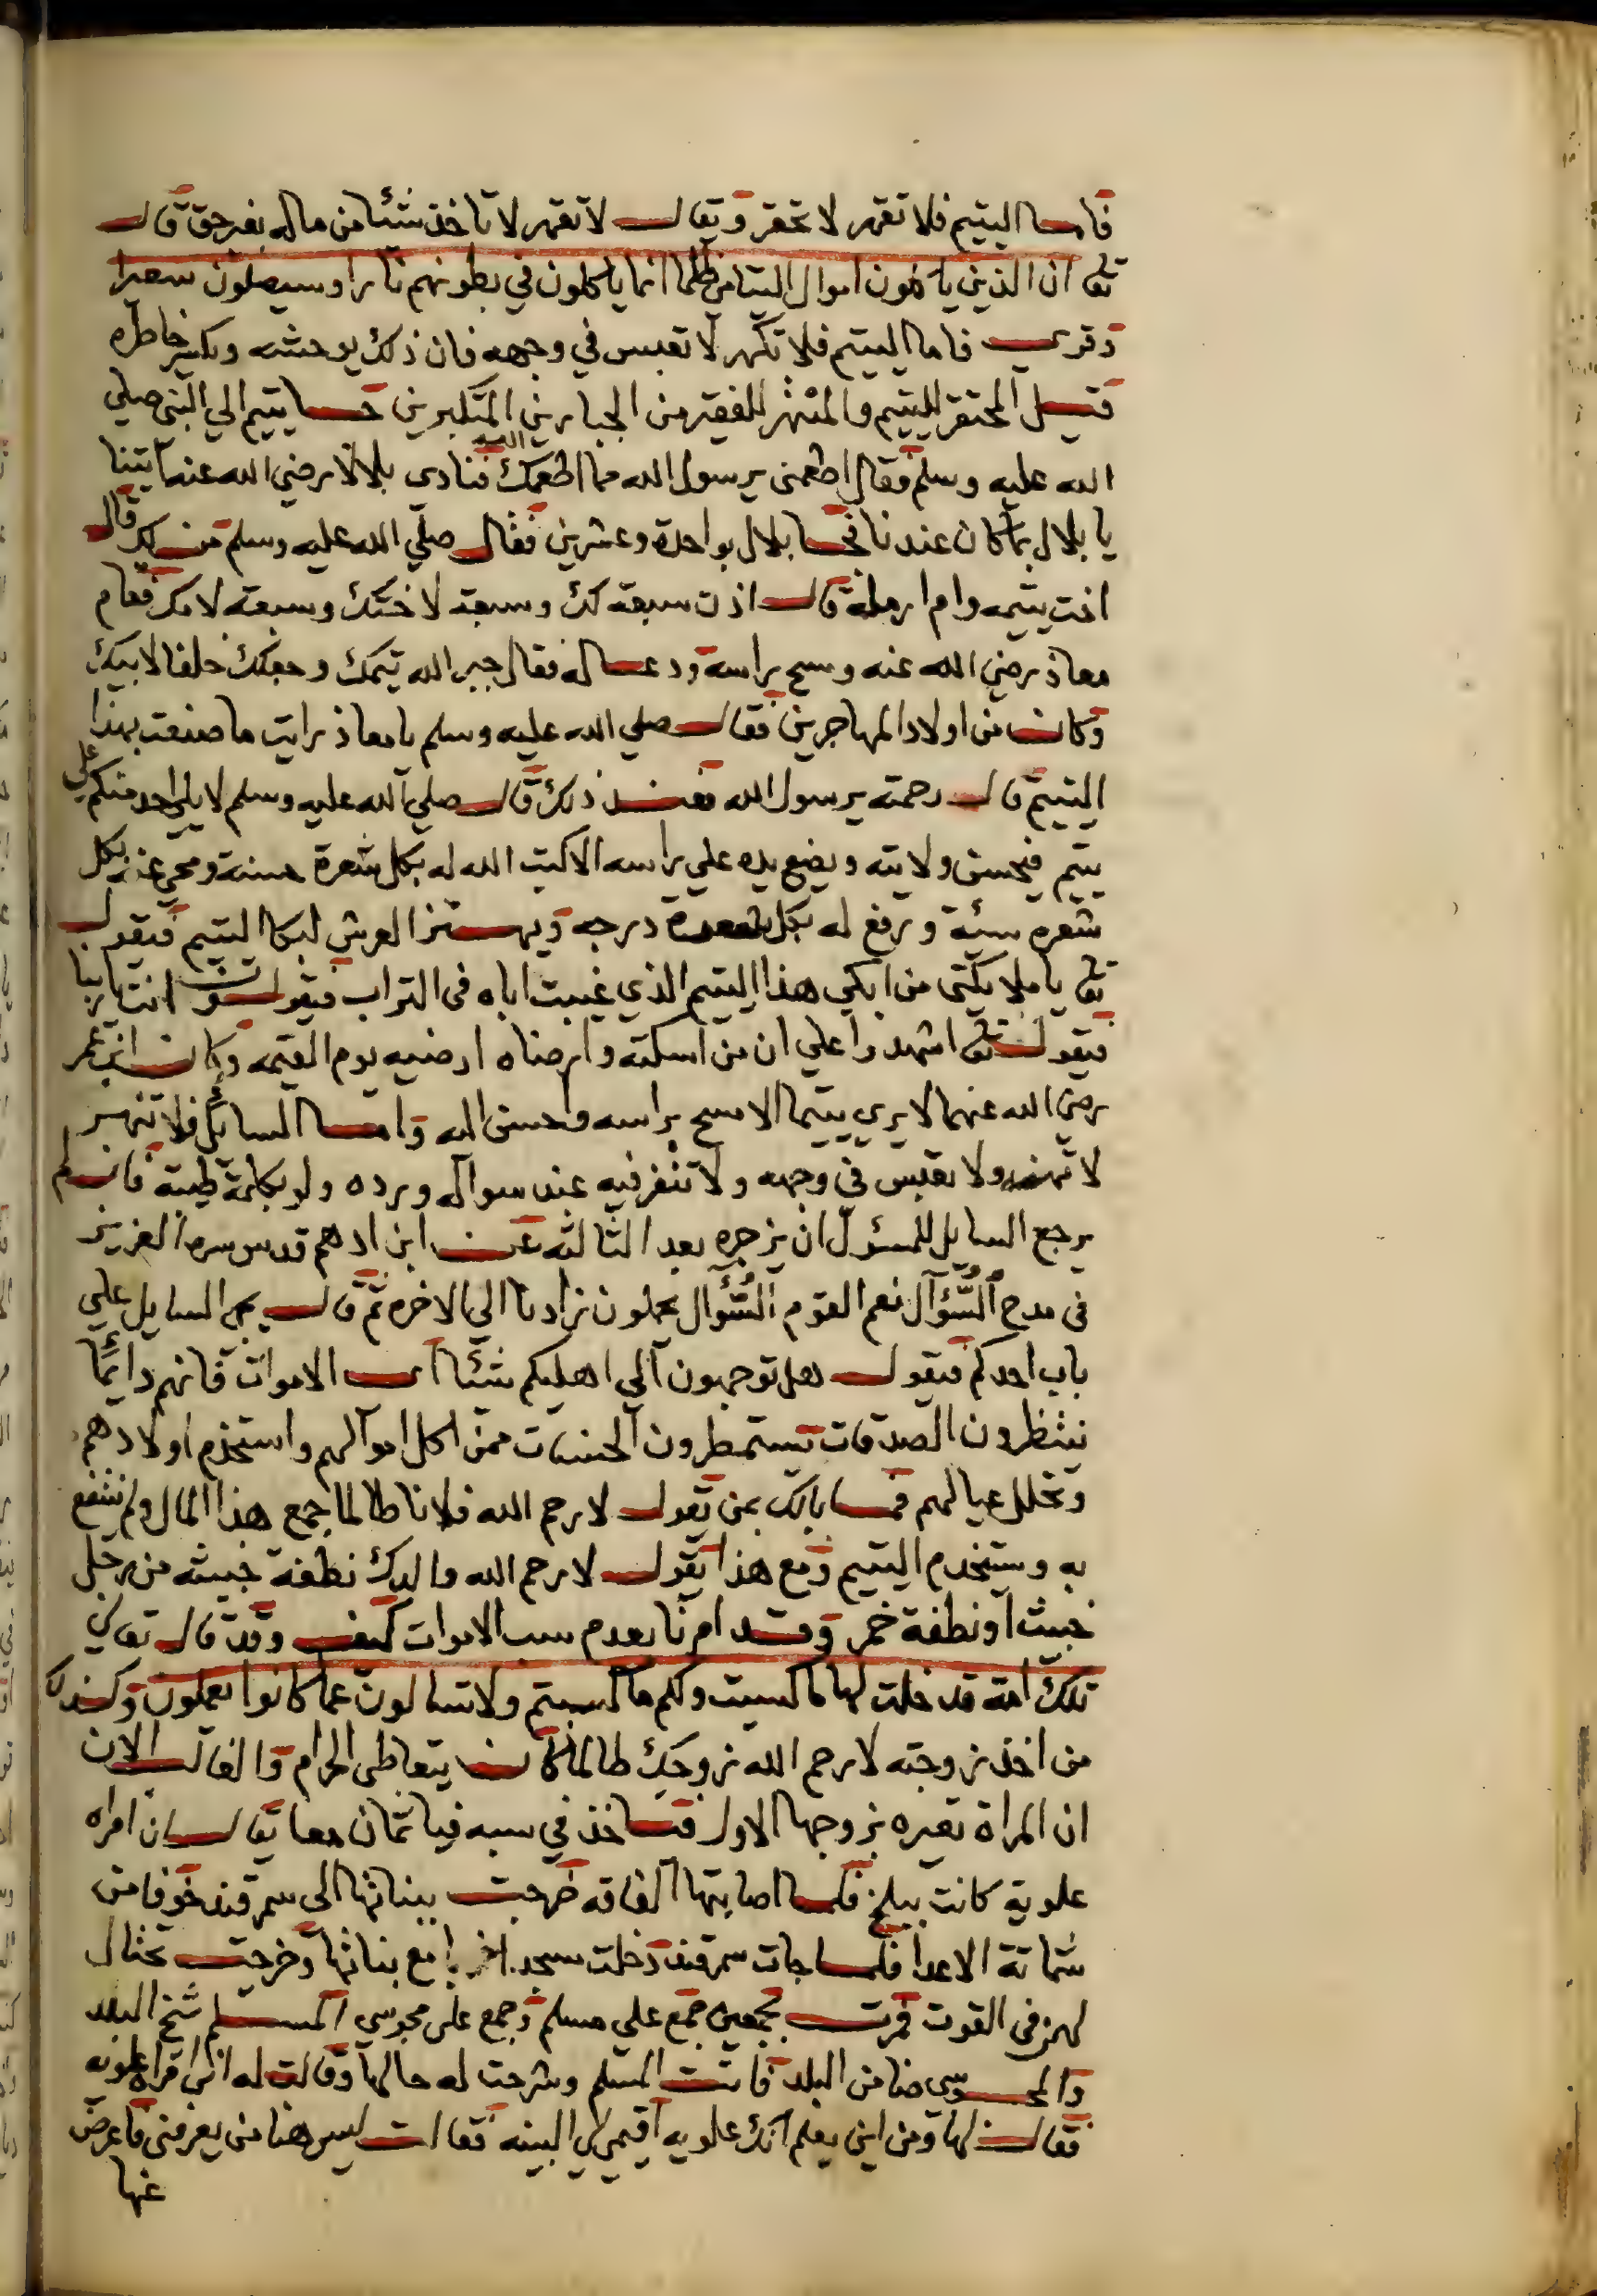 فاما اليتيم فلا تقهر لا تحقر ويقال لا تقهر لا تاخذ شئا من ماله بغير حق قال
تعا ان الذين ياكلون اموال اليتامى ظلما انما ياكلون في بطونهم نارا وسيصلون سعيرا
وقري فاما اليتيم فلا تكهر لا تعبس في وجهه فان ذلك يوحشه ويكسر خاطره
قيل المحتقر لليتيم والمنتهر للفقير من الجبارين المتكبرين جا يتيم الي النبي صلي
الله عليه وسلم فقال اطعمني يرسول الله مما اطعمك الله فنادي بلالا رضي الله عنه ايتنا
يا بلال بما كان عندنا فجا بلال بواحدة وعشرين فقال صلي الله عليه وسلم من لك قال
اخت يتيمه وام ارملة قال اذن سبعة لك وسبعة لاختك وسبعة لامك فقام
معاذ رضي الله عنه ومسح براسه ودعا له فقال جبر الله يتمك وجعلك خلفا لابيك
وكان من اولاد المهاجرين فقال صلي الله عليه وسلم يا معاذ رايت ما صنعت بهذا
اليتيم قال رحمته يرسول الله فعند ذلك قال صلي الله عليه وسلم لا يلي احد منكم علي
يتيم فيحسن ولايته ويضع يده علي راسه الا كتب الله له بكل شعرة حسنة ومحي عنه بكل
شعره سيئة ورفع له بكل شعرة درجه ويهتز العرش لبكا اليتيم فيقول
تعا يا ملايكتي من ابكي هذا اليتيم الذي غيبت اباه في التراب فيقولون انت ربنا
فيقول تعا اشهدوا علي ان من اسكته وارضاه ارضيه يوم القيمه وكان ابن عمر
رضي الله عنهما لا يري يتيما الا مسح براسه واحسن اليه واما السايل فلا تنهر
لا تنهره ولا تعبس في وجهه ولا تنفر فيه عند سواله ورده ولو بكلمة طيبة فان لم
يرجع السايل للمسؤل ان يزجره بعد الثالثة عن ابن ادهم قدس سره العزيز
في مدح السُّؤآل نعم القوم السُّؤال يحملون زادنا الي الاخره ثم قال يجى السايل علي
باب احدكم فيقول هل توجهون الي اهليكم شئا اى الاموات فانهم دايمًا
ينتظرون الصدقات يستمطرون الحسنات ممن اكل اموالهم واستخدم اولادهم
وتخلل عيالهم فما بالك بمن يقول لا رحم الله فلانا طالما جمع هذا المال ولم ينتفع
به ويستخدم اليتيم ومع هذا يقول لا رحم الله والدك نطفة خبيثه من رجل
خبيث او نطفة خمر وقد امرنا بعدم سب الاموات كيف وقد قال تعالي
تلك امة قد خلت لها ما كسبت ولكم ما كسبتم ولا تسالون عما كانوا يعملون وكذلك
من اخذ زوجته لا رحم الله زوجك طالما كان يتعاطى الحرام والغالب الان
ان المراة تعيره بزوجها الاول فتاخذ في سبه فياثمان معا يقال ان امراه
علوية كانت ببلخ فلما اصابتها الفاقه خرجت ببناتها الى سمرقند خوفا من
شماتة الاعدا فلما جات سمرقند دخلت مسجد مع بناتها وخرجت تحتال
لهن في القوت فمرت بجمعين جمع علي مسلم وجمع على مجوسي المسلم شيخ البلد
والمجوسي ضامن البلد فاتت المسلم وشرحت له حالها وقالت له اني امراه علويه
فقال لها ومن اين يعلم انك علويه اقيمي لي البينه فقالت ليس هنا من يعرفني فاعرض
عنها